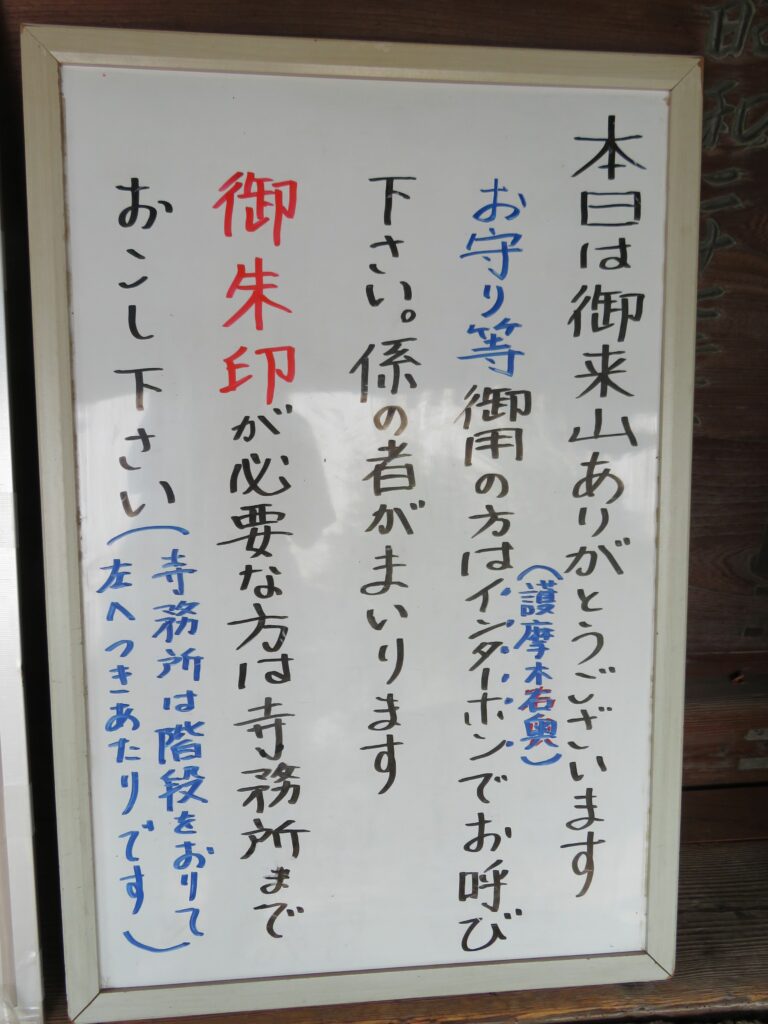 本日は御来山ありがとうございます
お守り等御用の方はインターホンでお呼び
(護摩木右奥)
下さい。係の者がまいります
御朱印が必要な方は寺務所まで
おこし下さい(寺務所は階段をおりて
左へつきあたりです)
昭和二十三